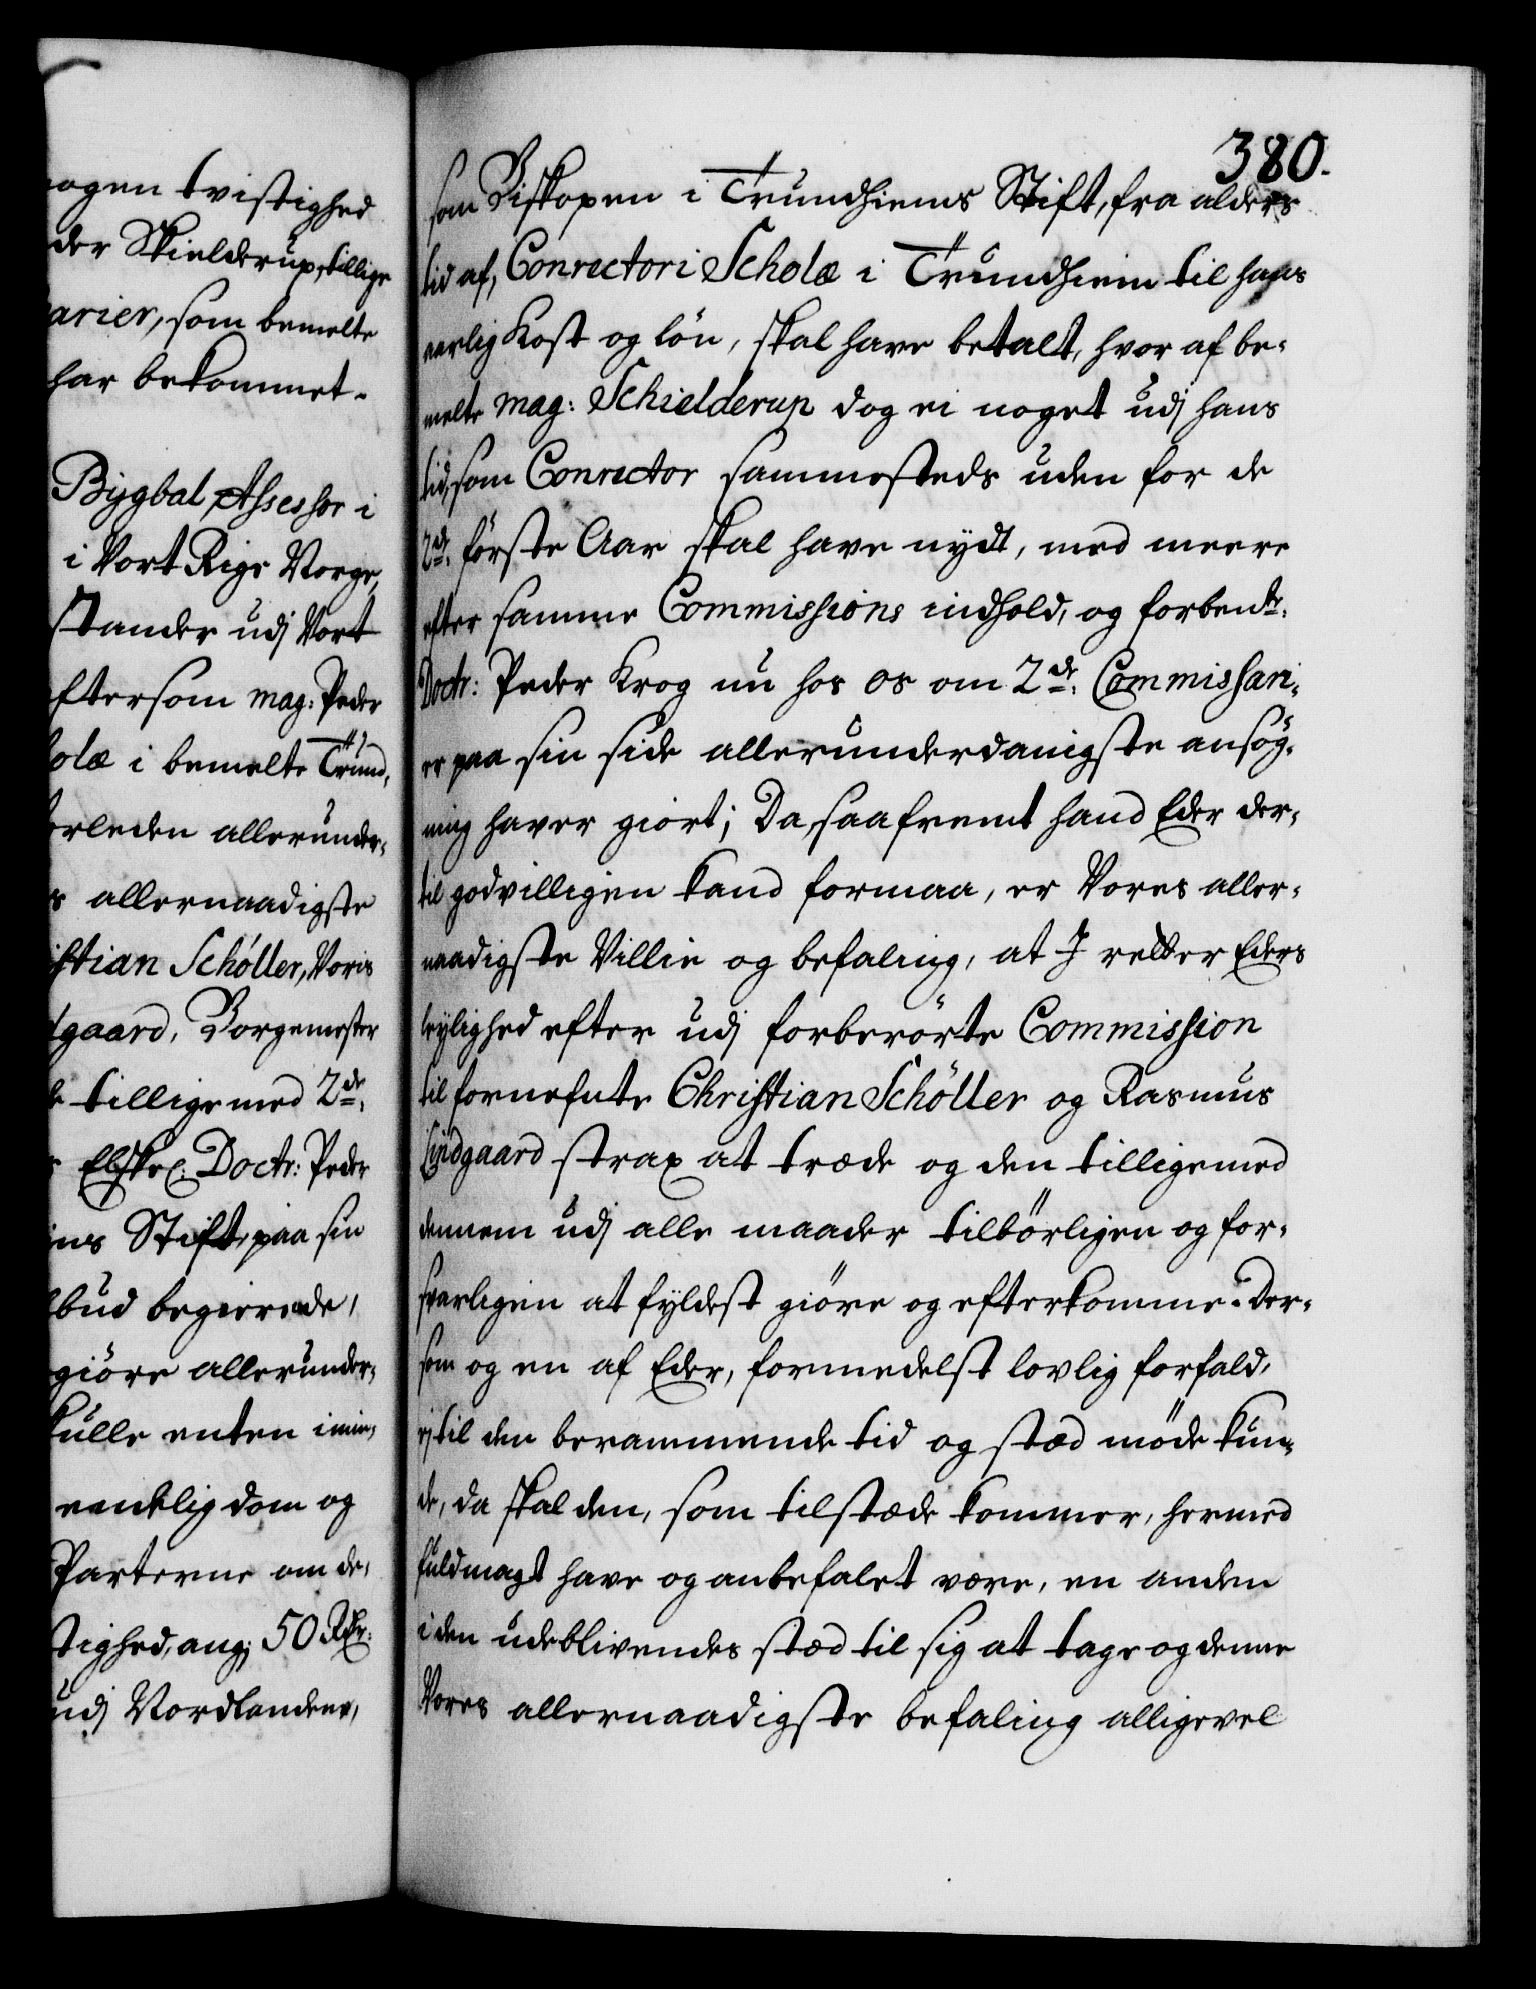 ogen tvistighed
der Skielderup, tillige
arier, som bemelte
har bekommet.
Bygbal Assessor i
i Vort Rige Norge,
stander udj Vort
ftersom mag: Peder
olæ i bemelte Trund,
rleden allerunder,
s allernaadigste
istian Schöller, Voris
dgaard, Borgemester
tillige med 2de.
Elskel: Doctr: Peder
ms Stift, paa sin
bud begierende,
giöre allerunder,
kulle enten i min,
endelig dom og
Parterne om de,
tighed, ang: 50 Rdr:
udj Nordlandene,
380.
som Biskopen i Trundhiems Stift, fra alders
tid af, Conrectori Scholæ i Trundhiem til hans
aarlig Kost og lön, skal have betalt, hvor af be,
melte mag: Schielderup dog ei noget udj hans
tid, som Conrector sammesteds uden for de
2de. förste Aar skal have nydt, med meere
efter samme Commissions indhold, og forbente.
Doctr: Peder Krog nu hos os om 2de: Commissari,
er paa sin side allerunderdanigste ansög,
ning haver giort; Da, saafremt hand Eder der,
til godvilligen kand formaa, er Vores aller,
naadigste Villie og befaling, at I retter Eders
leylighed efter udj forberörte Commission
til fornefnte Christian Schöller og Rasmus
Lyndgaard strax at træde og den tilligemed
dennem udj alle maader tilbörligen og for,
svarligen at fyldest giöre og efterkomme. Der,
som og en af Eder, formedelst lovlig forfald,
ej til den berammende tid og stæd möde kun,
de, da skal den, som tilstæde kommer, hermed
fuldmagt have og anbefalet være, en anden
i den udeblivendes stæd til sig at tage og denne
Vores allernaadigste befaling alligevel